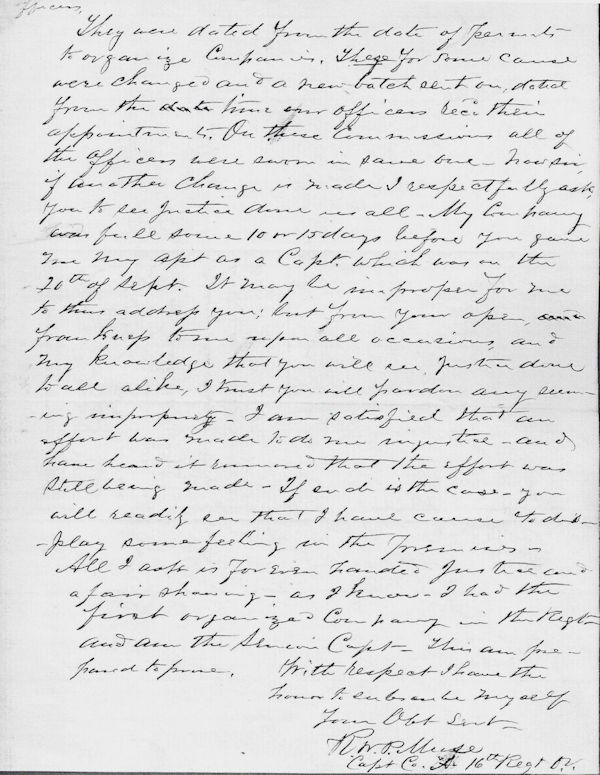 officers,
They were dated from the date of permits
to organize Companies. These for some cause
were changed and a new batch sent on, dated
from the date time our officers recd their
appointments. On these Commissions all of
the Officers were sworn in save one - now sir,
if another change is made I respectfully ask
you to see Justice done us all - My Company
was full some 10 or 15 days before you gave
me my apt as a Capt. which was on the
20th of Sept. It may be improper for me
to thus address you; but from your open,
frankness to me upon all occasions, and
my knowledge that you will see Justice done
to all alike, I trust you will pardon any seem-
-ing impropriety - I am satisfied that an
effort was made to do me injustice - and
have heard it rumored that the effort was
still being made - If such is the case - you
will readily see that I have cause to dis-
-play some feeling in the premises -
All I ask is for even handed Justice and
a fair showing - as I know - I had the
first organized Company in the Regt -
and am the Senior Capt - This am pre-
pared to prove. With respect I have the
honor to subscribe myself
Your Obt Servt -
R. W. P. Muse
Capt Co. 16th Regt O.V.